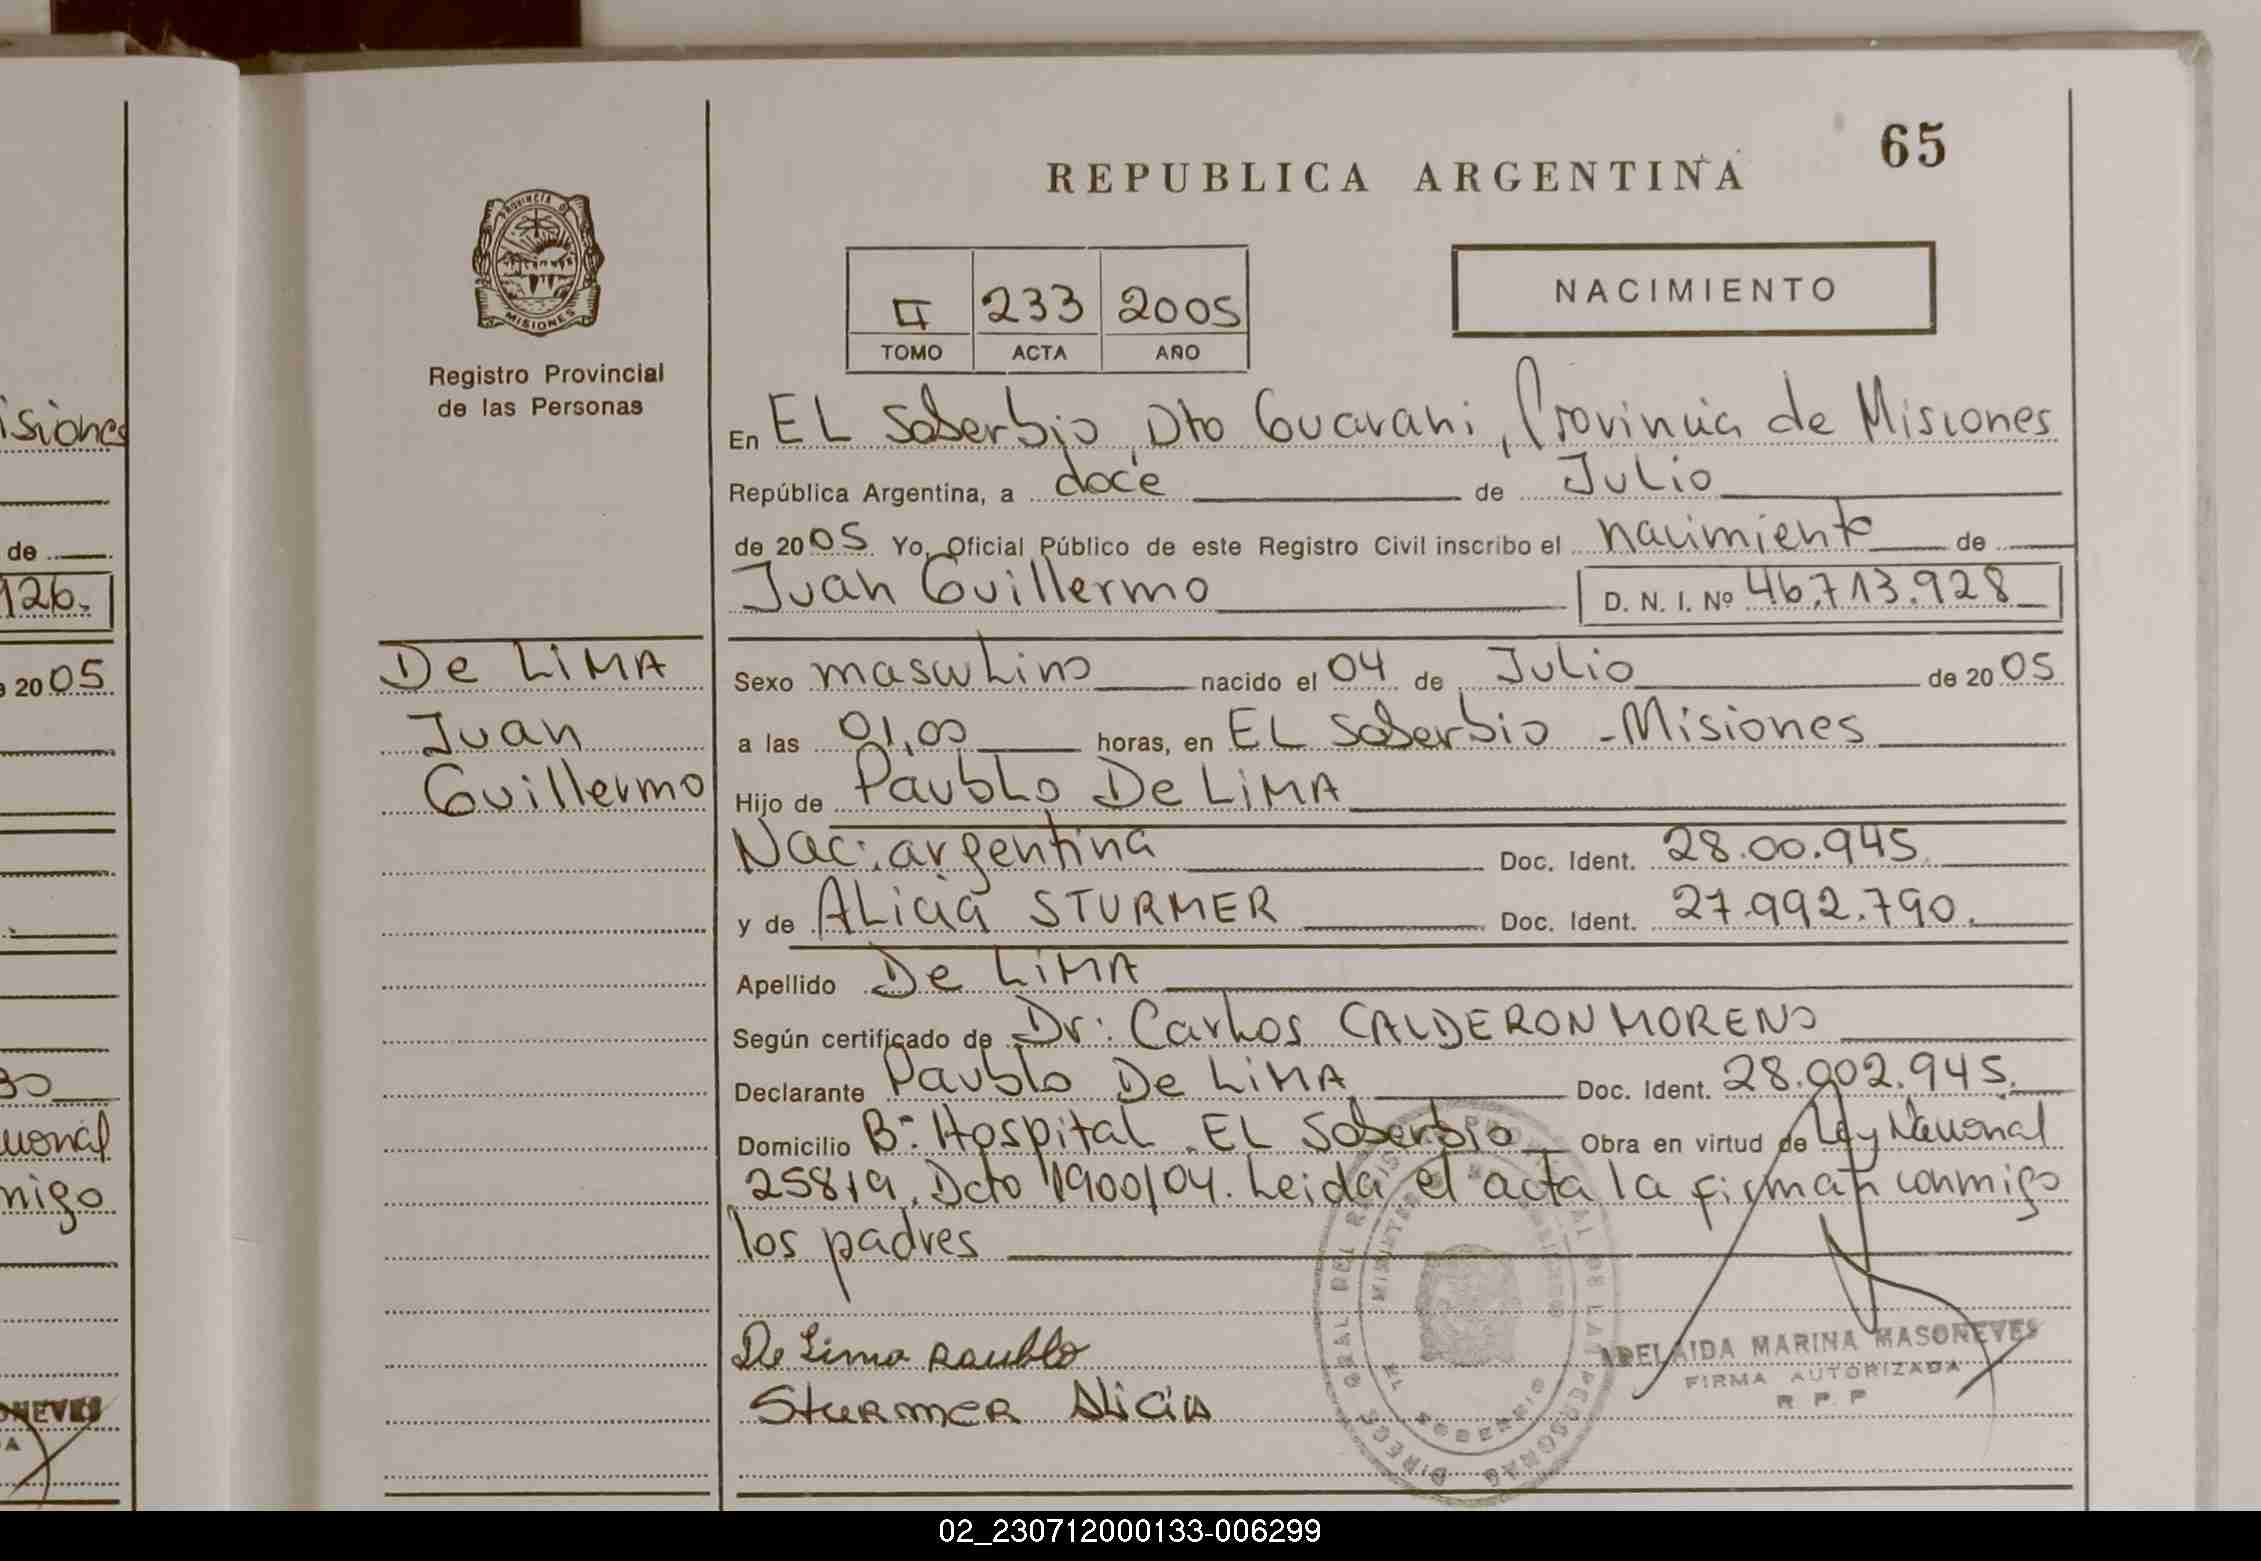 65
REPUBLICA ARGENTINA
PROVINCIA DE
MISIONES
Registro Provincial
de las Personas
II 233 2005
TOMO ACTA AÑO
NACIMIENTO
isiones
En EL Soberbio, Dto Guarani, Provincia de Misiones
República Argentina, a doce de Julio
de 2005 Yo, Oficial Público de este Registro Civil inscribo el nacimiento de
de
Juan Guillermo D. N. I. Nº 46.713.928
126.
De LiMA
Juan
Guillermo
Sexo masculino nacido el 04 de Julio de 2005
2005
a las 01,00 horas, en EL Soberbio - Misiones
Hijo de Paublo De LiMA
Nac: argentina Doc. Ident. 28.00.945
y de ALicia STURMER Doc. Ident. 27.992.790.
Apellido De LiMA
Según certificado de Dr: Carlos CALDERON MORENO
Declarante Paublo De LiMA Doc. Ident. 28.002.945.
Domicilio Bº Hospital. EL Soberbio Obra en virtud de Ley Nacional
25819. Dcto 1900/04. Leida el acta la firman conmigo
los padres
cional
migo
De Lima Paublo
Sturmer Alicia
ADELAIDA MARINA MASONEVES
FIRMA AUTORIZADA
R. P. P
ONEVES
02_230712000133-006299